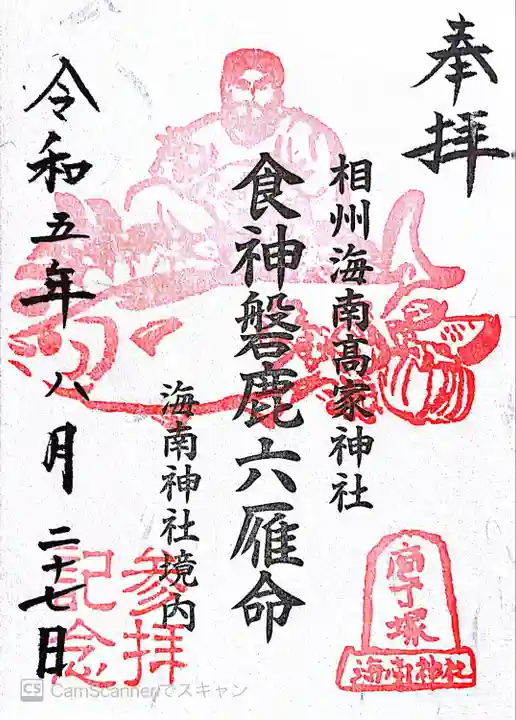 奉拝
相州海南髙家神社
食神磐鹿六雁命
海南神社境内
令和五年八月二十七日
参拝
記念
庖丁塚
海南神社
CS CamScannerでスキャン